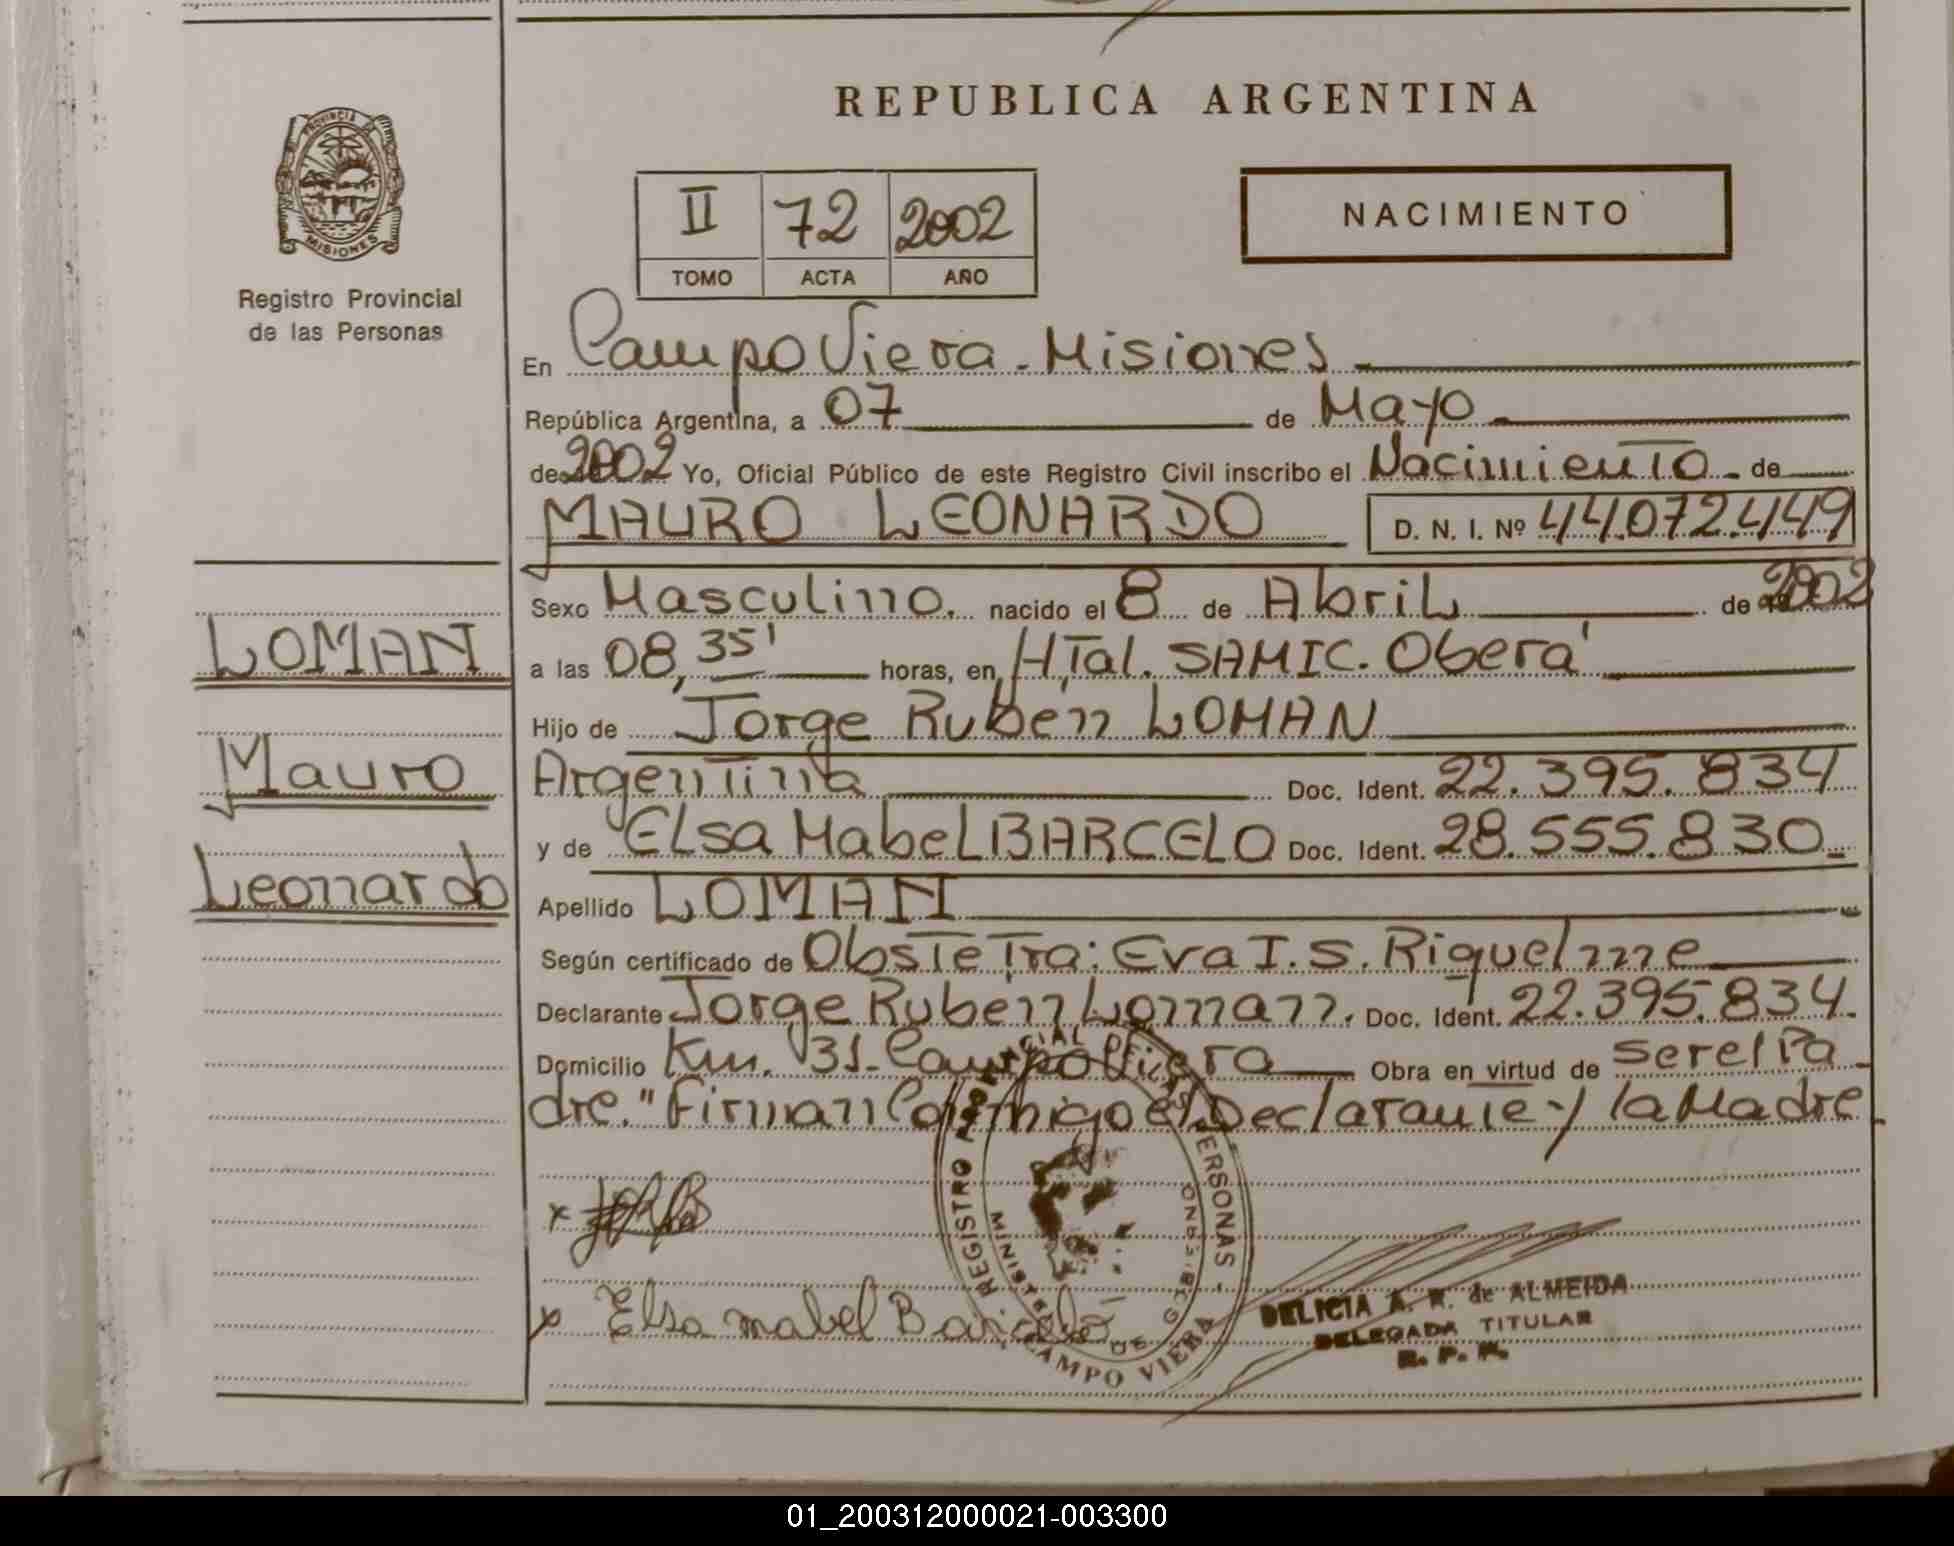 REPUBLICA ARGENTINA
PROVINCIA DE
MISIONES
Registro Provincial
de las Personas
II 72 2002
TOMO ACTA AÑO
NACIMIENTO
En Campo Viera - Misiones
República Argentina, a 07 de Mayo
de 2002 Yo, Oficial Público de este Registro Civil inscribo el Nacimiento de
MAURO LEONARDO D. N. I. Nº 44.072.449
Sexo Masculino. nacido el 8 de Abril de 2002
a las 08,35' horas, en H,Tal. SAMIC. Oberá
Hijo de Jorge Ruben LOMAN
Argentina Doc. Ident. 22.395.834
y de ELsa MabeL BARCELO Doc. Ident. 28.555.830
Apellido LOMAN
Según certificado de Obstetra: Eva I. S. Riquelme
Declarante Jorge Ruben Loman. Doc. Ident. 22.395.834.
Domicilio Km. 31- Campo Viera Obra en virtud de ser el Pa
dre." Firman Conmigo el Declarante y la Madre
LOMAN
Mauro
Leonardo
x
x Elsa mabel Barceló
REGISTRO PERSONAS
CAMPO VIERA
DELICIA A. R. de ALMEIDA
DELEGADA TITULAR
R. P. P.
01_200312000021-003300